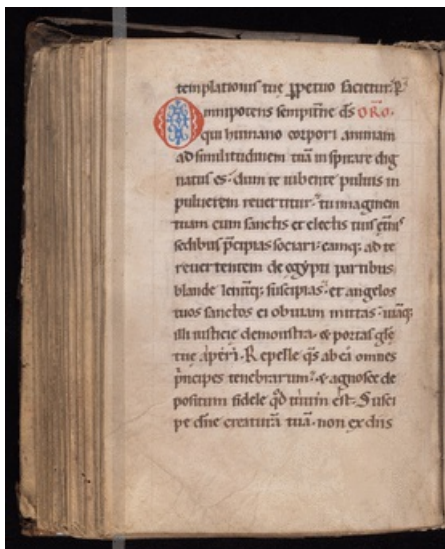 templationis tue ꝑpetuo sacietur. ꝑ
Omnipotens sempit̄ne d̄s ORO.
qui humano corpori animam
ad similitudinem tuā inspirare dig
natus es. dum te iubente puluis in
puluerem reuertitur. tu imaginem
tuam cum sanctis et electis tuis
sedibus p̄cipias sociari. eamq; ad te
reuertentem de egypti partibus
blande lenitq; suscipias. et angelos
tuos sanctos ei obuiam mittas. uiāq;
illi iusticie demonstra. & portas gl̄e
tue aperi. Repelle q̄s ab ea omnes
p̄ncipes tenebrarum. & agnosce de
positum fidele qd̄ tuum ē̄st. Susci
pe dn̄e creaturā tuā. non ex diis